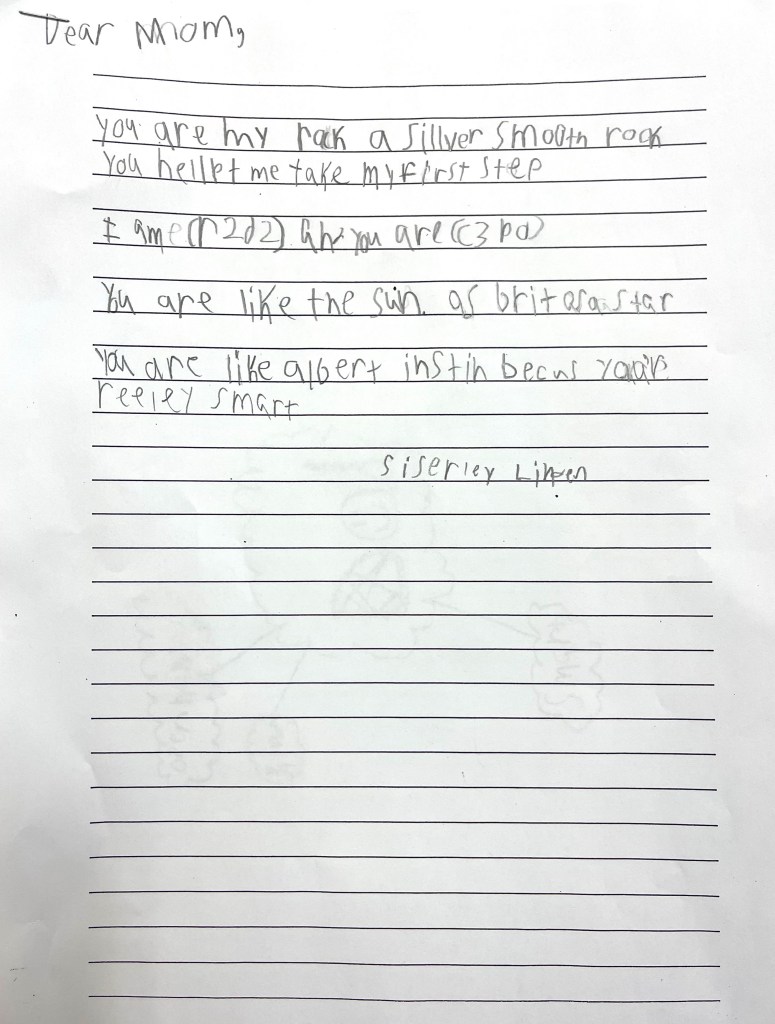 Dear Mom,
you are my rock a sillver smooth rock
You hellpt me take my first step
I ame (r2d2) you are (c3po)
You are like the sun. as brit as a star
You are like albert instin becus
reeley smart
siserley